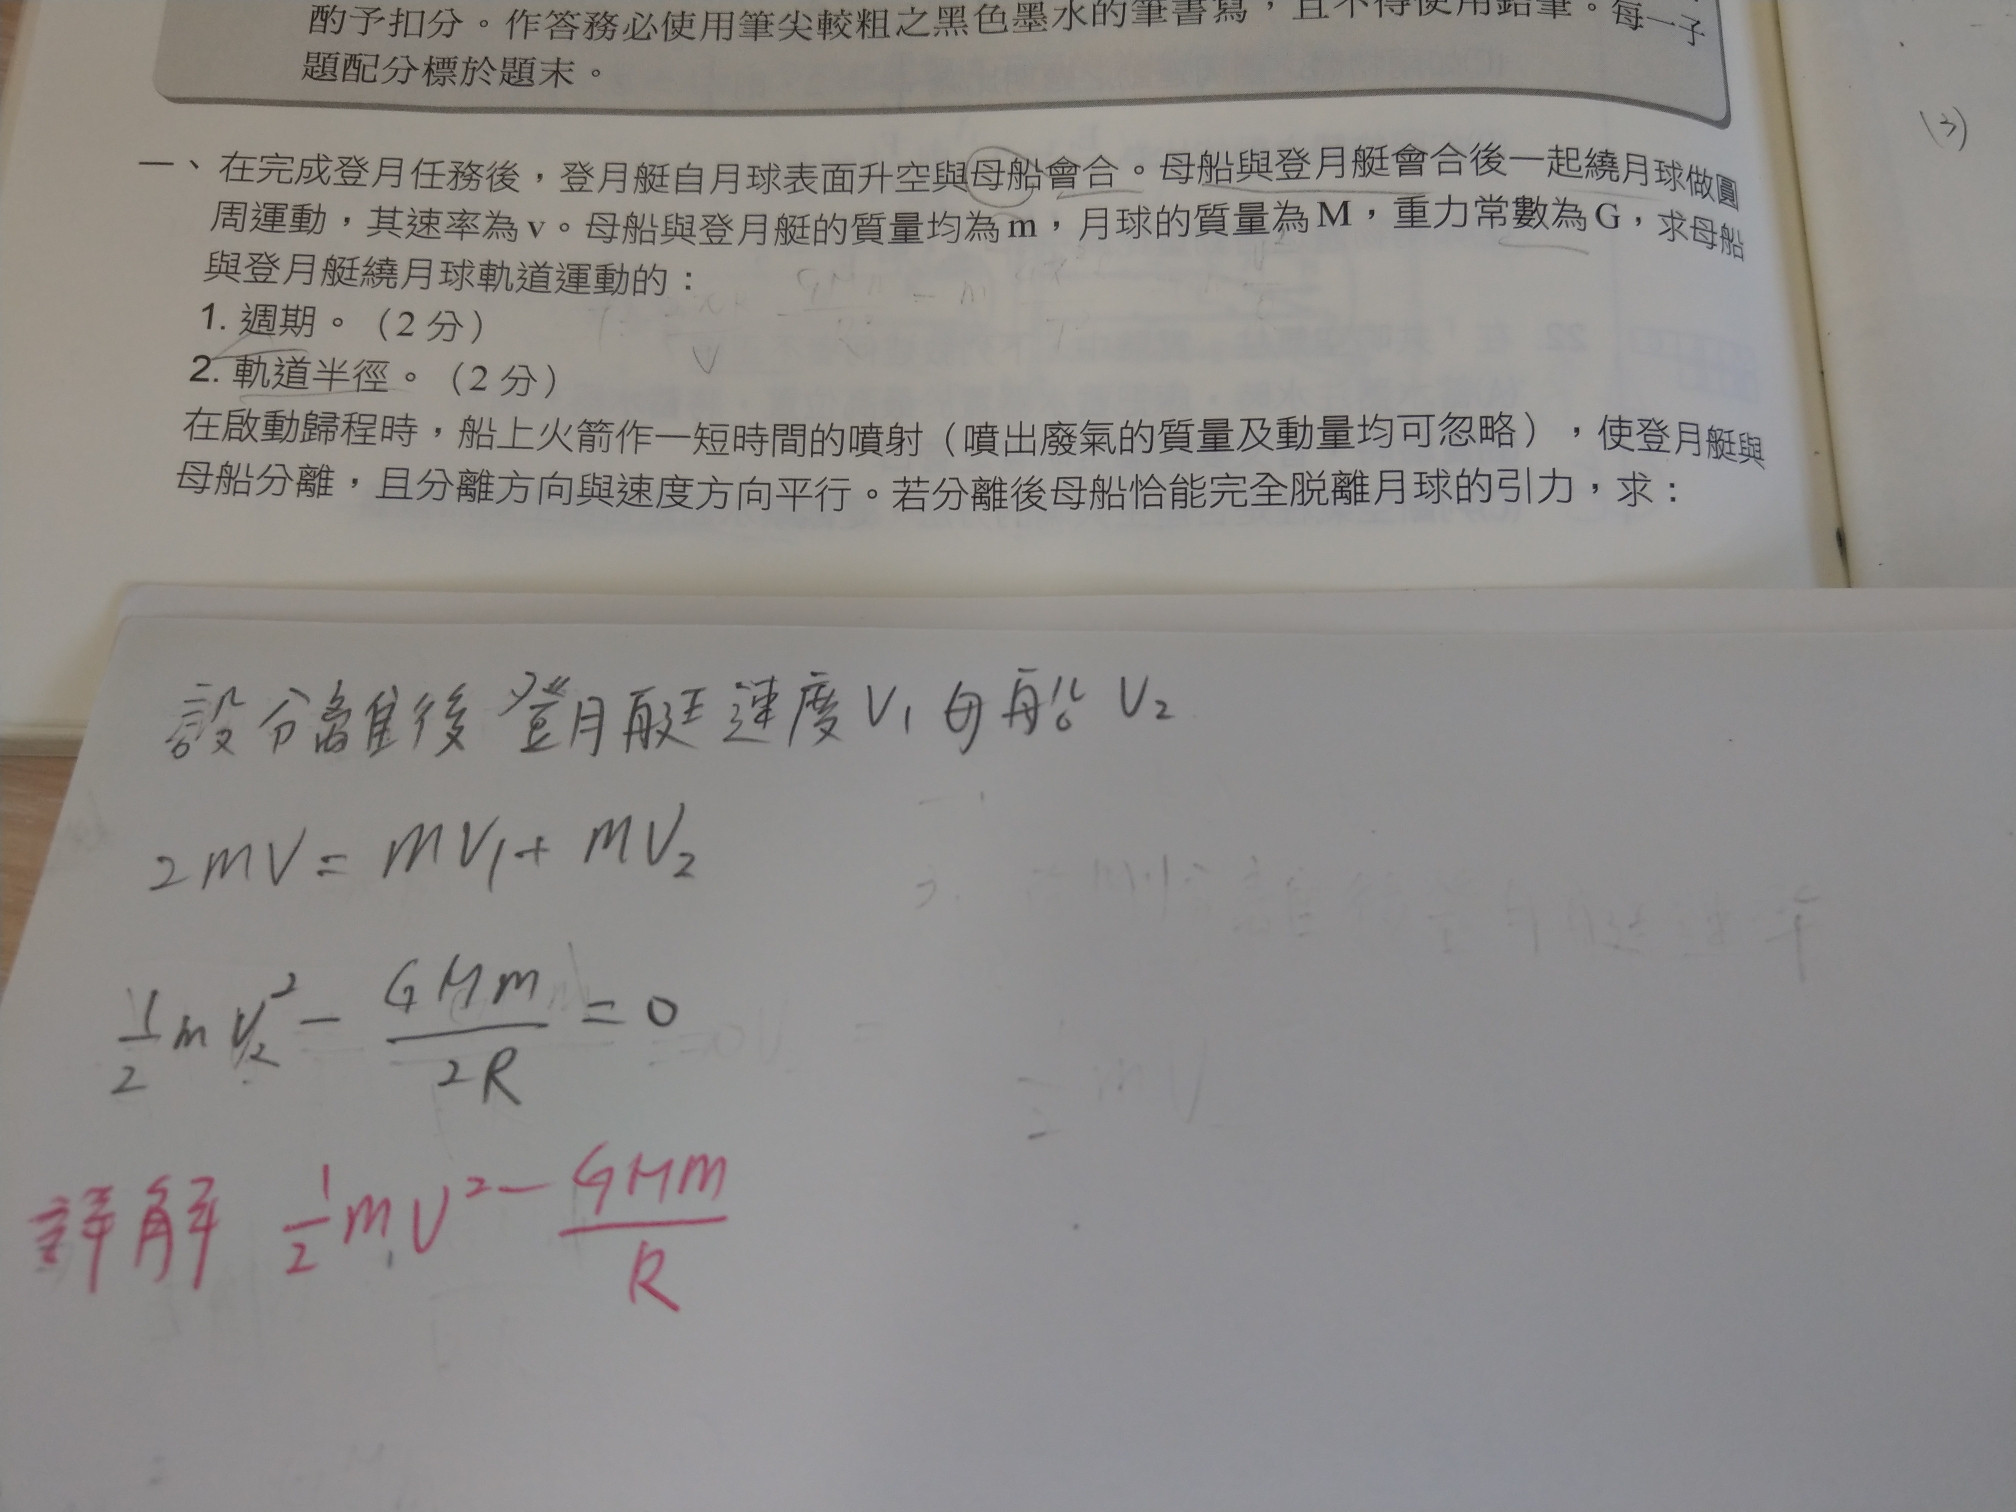 酌予扣分。作答務必使用筆尖較粗之黑色墨水的筆書寫，且不得使用鉛筆。每一子
題配分標於題末。
(3)
一、在完成登月任務後，登月艇自月球表面升空與母船會合。母船與登月艇會合後一起繞月球做圓
周運動，其速率為v。母船與登月艇的質量均為m，月球的質量為M，重力常數為G，求母船
與登月艇繞月球軌道運動的：
1. 週期。（2 分）
2. 軌道半徑。（2 分）
在啟動歸程時，船上火箭作一短時間的噴射（噴出廢氣的質量及動量均可忽略），使登月艇與
母船分離，且分離方向與速度方向平行。若分離後母船恰能完全脫離月球的引力，求：
設分離後登月艇速度V₁母船V₂
2mV = mV₁ + mV₂
½mV₂² − GMm/2R = 0
詳解 ½mV² − GMm/R